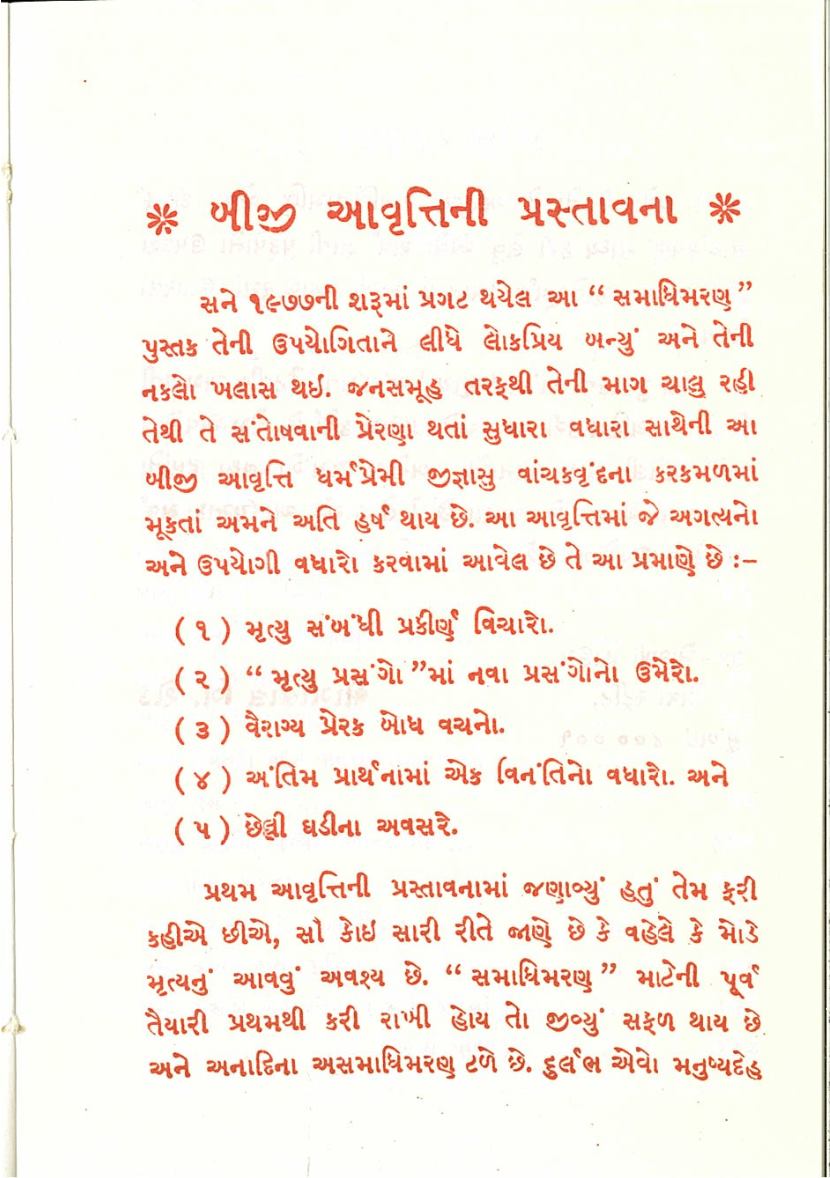 ❋ બીજી આવૃત્તિની પ્રસ્તાવના ❋
સને ૧૯૭૭ની શરૂમાં પ્રગટ થયેલ આ “ સમાધિમરણ ”
પુસ્તક તેની ઉપયોગિતાને લીધે લોકપ્રિય બન્યું અને તેની
નકલો ખલાસ થઇ. જનસમૂહ તરફથી તેની માગ ચાલુ રહી
તેથી તે સંતોષવાની પ્રેરણા થતાં સુધારા વધારા સાથેની આ
બીજી આવૃત્તિ ધર્મપ્રેમી જીજ્ઞાસુ વાંચકવૃંદના કરકમળમાં
મૂકતાં અમને અતિ હર્ષ થાય છે. આ આવૃત્તિમાં જે અગત્યનો
અને ઉપયોગી વધારો કરવામાં આવેલ છે તે આ પ્રમાણે છે :–
( ૧ ) મૃત્યુ સંબંધી પ્રકીર્ણ વિચારો.
( ૨ ) “ મૃત્યુ પ્રસંગો ”માં નવા પ્રસંગોનો ઉમેરો.
( ૩ ) વૈરાગ્ય પ્રેરક બોધ વચનો.
( ૪ ) અંતિમ પ્રાર્થનામાં એક વિનંતિનો વધારો. અને
( ૫ ) છેલ્લી ઘડીના અવસરે.
પ્રથમ આવૃત્તિની પ્રસ્તાવનામાં જણાવ્યું હતું તેમ ફરી
કહીએ છીએ, સૌ કોઇ સારી રીતે જાણે છે કે વહેલે કે મોડે
મૃત્યનું આવવું અવશ્ય છે. “ સમાધિમરણ ” માટેની પૂર્વ
તૈયારી પ્રથમથી કરી રાખી હોય તો જીવ્યું સફળ થાય છે
અને અનાદિના અસમાધિમરણ ટળે છે. દુર્લભ એવો મનુષ્યદેહ